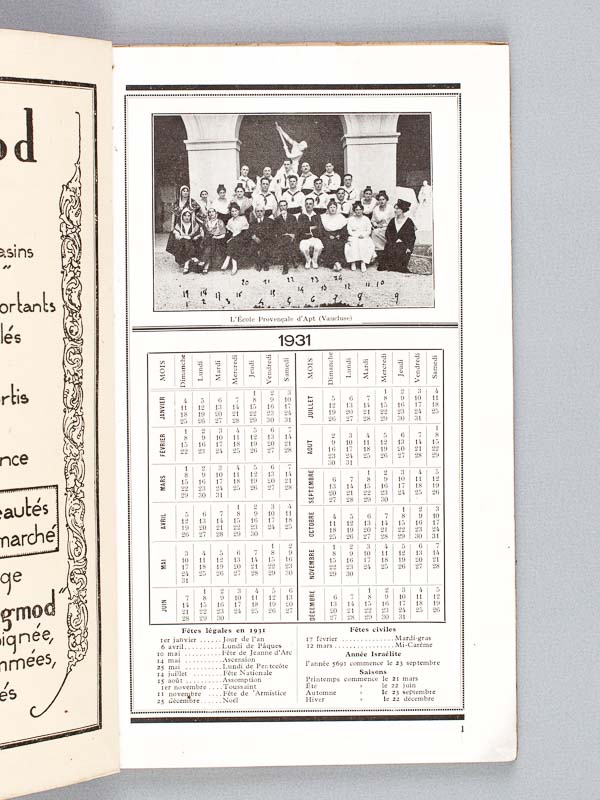 od
asins
”
portants
lés
rtis
nce
eautés
marché
ge
gmod
oignée,
mmées,
és
L'École Provençale d'Apt (Vaucluse)
1931
MOIS Dimanche Lundi Mardi Mercredi Jeudi Vendredi Samedi
JANVIER
1 2 3
4 5 6 7 8 9 10
11 12 13 14 15 16 17
18 19 20 21 22 23 24
25 26 27 28 29 30 31
FÉVRIER
1 2 3 4 5 6 7
8 9 10 11 12 13 14
15 16 17 18 19 20 21
22 23 24 25 26 27 28
MARS
1 2 3 4 5 6 7
8 9 10 11 12 13 14
15 16 17 18 19 20 21
22 23 24 25 26 27 28
29 30 31
AVRIL
1 2 3 4
5 6 7 8 9 10 11
12 13 14 15 16 17 18
19 20 21 22 23 24 25
26 27 28 29 30
MAI
1 2
3 4 5 6 7 8 9
10 11 12 13 14 15 16
17 18 19 20 21 22 23
24 25 26 27 28 29 30
31
JUIN
1 2 3 4 5 6
7 8 9 10 11 12 13
14 15 16 17 18 19 20
21 22 23 24 25 26 27
28 29 30
MOIS Dimanche Lundi Mardi Mercredi Jeudi Vendredi Samedi
JUILLET
1 2 3 4
5 6 7 8 9 10 11
12 13 14 15 16 17 18
19 20 21 22 23 24 25
26 27 28 29 30 31
AOUT
1
2 3 4 5 6 7 8
9 10 11 12 13 14 15
16 17 18 19 20 21 22
23 24 25 26 27 28 29
30 31
SEPTEMBRE
1 2 3 4 5
6 7 8 9 10 11 12
13 14 15 16 17 18 19
20 21 22 23 24 25 26
27 28 29 30
OCTOBRE
1 2 3
4 5 6 7 8 9 10
11 12 13 14 15 16 17
18 19 20 21 22 23 24
25 26 27 28 29 30 31
NOVEMBRE
1 2 3 4 5 6 7
8 9 10 11 12 13 14
15 16 17 18 19 20 21
22 23 24 25 26 27 28
29 30
DÉCEMBRE
1 2 3 4 5
6 7 8 9 10 11 12
13 14 15 16 17 18 19
20 21 22 23 24 25 26
27 28 29 30 31
Fêtes légales en 1931
1er janvier ...... Jour de l'an
6 avril ......... Lundi de Pâques
10 mai ......... Fête de Jeanne d'Arc
14 mai ......... Ascension
25 mai ......... Lundi de Pentecôte
14 juillet ....... Fête Nationale
15 août ......... Assomption
1er novembre .... Toussaint
11 novembre .... Fête de l'Armistice
25 décembre ...... Noël
Fêtes civiles
17 février ............... Mardi-gras
12 mars ............... Mi-Carême
Année Israélite
l'année 5691 commence le 23 septembre
Saisons
Printemps commence le 21 mars
Été » le 22 juin
Automne » le 23 septembre
Hiver » le 22 décembre
1